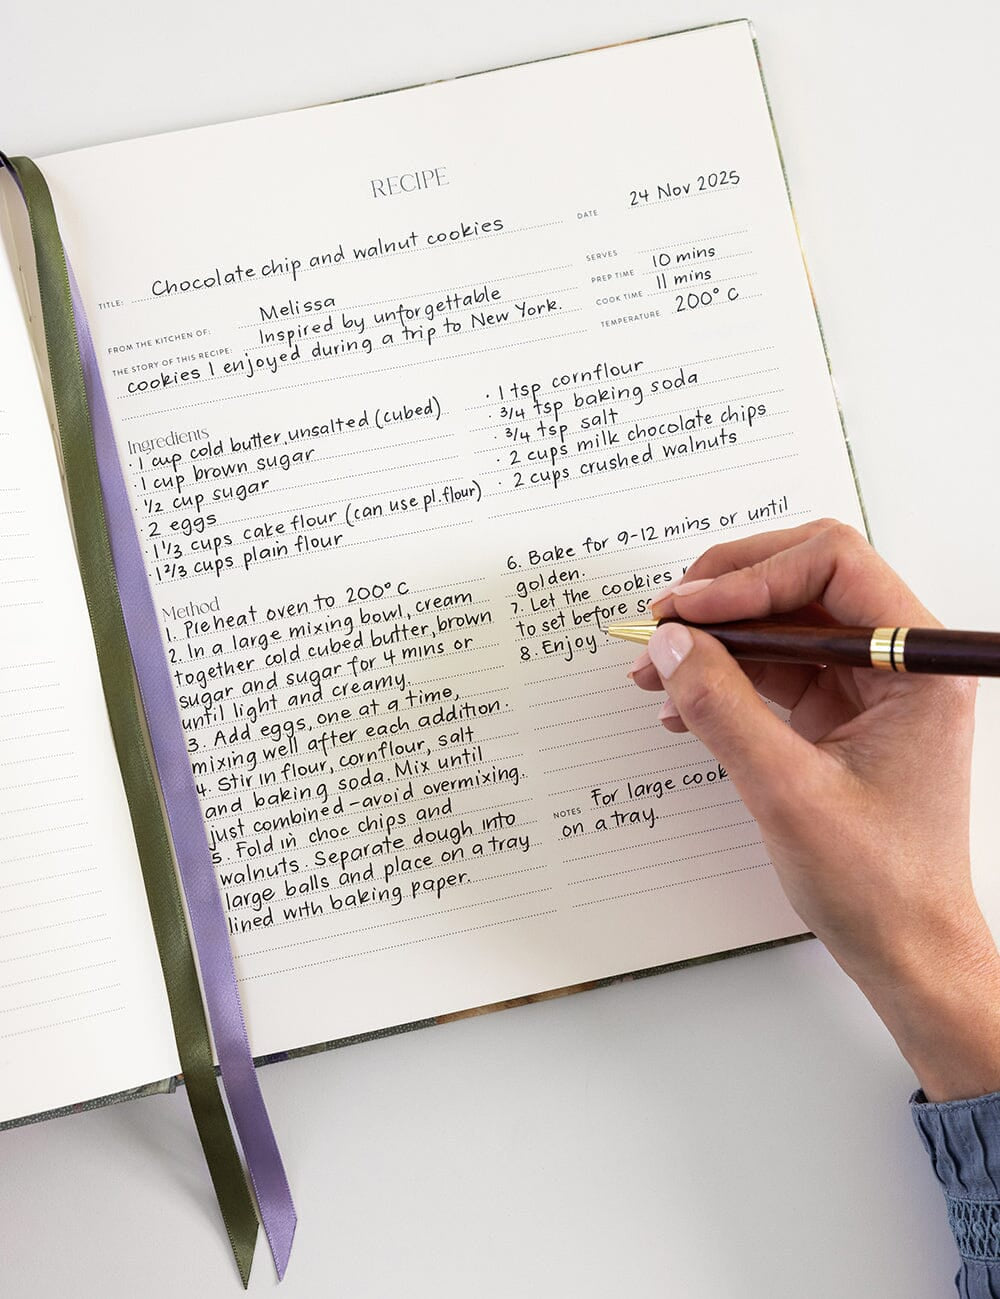 RECIPE
DATE 24 Nov 2025
TITLE: Chocolate chip and walnut cookies
SERVES
FROM THE KITCHEN OF: Melissa
PREP TIME 10 mins
THE STORY OF THIS RECIPE: Inspired by unforgettable
COOK TIME 11 mins
cookies I enjoyed during a trip to New York.
TEMPERATURE 200° C
Ingredients
· 1 cup cold butter, unsalted (cubed)
· 1 cup brown sugar
· 1/2 cup sugar
· 2 eggs
· 1 1/3 cups cake flour (can use pl. flour)
· 1 2/3 cups plain flour
· 1 tsp cornflour
· 3/4 tsp baking soda
· 3/4 tsp salt
· 2 cups milk chocolate chips
· 2 cups crushed walnuts
Method
1. Preheat oven to 200°C
2. In a large mixing bowl, cream
together cold cubed butter, brown
sugar and sugar for 4 mins or
until light and creamy.
3. Add eggs, one at a time,
mixing well after each addition.
4. Stir in flour, cornflour, salt
and baking soda. Mix until
just combined - avoid overmixing.
5. Fold in choc chips and
walnuts. Separate dough into
large balls and place on a tray
lined with baking paper.
6. Bake for 9-12 mins or until
golden.
7. Let the cookies
to set before
8. Enjoy.
NOTES For large
on a tray.